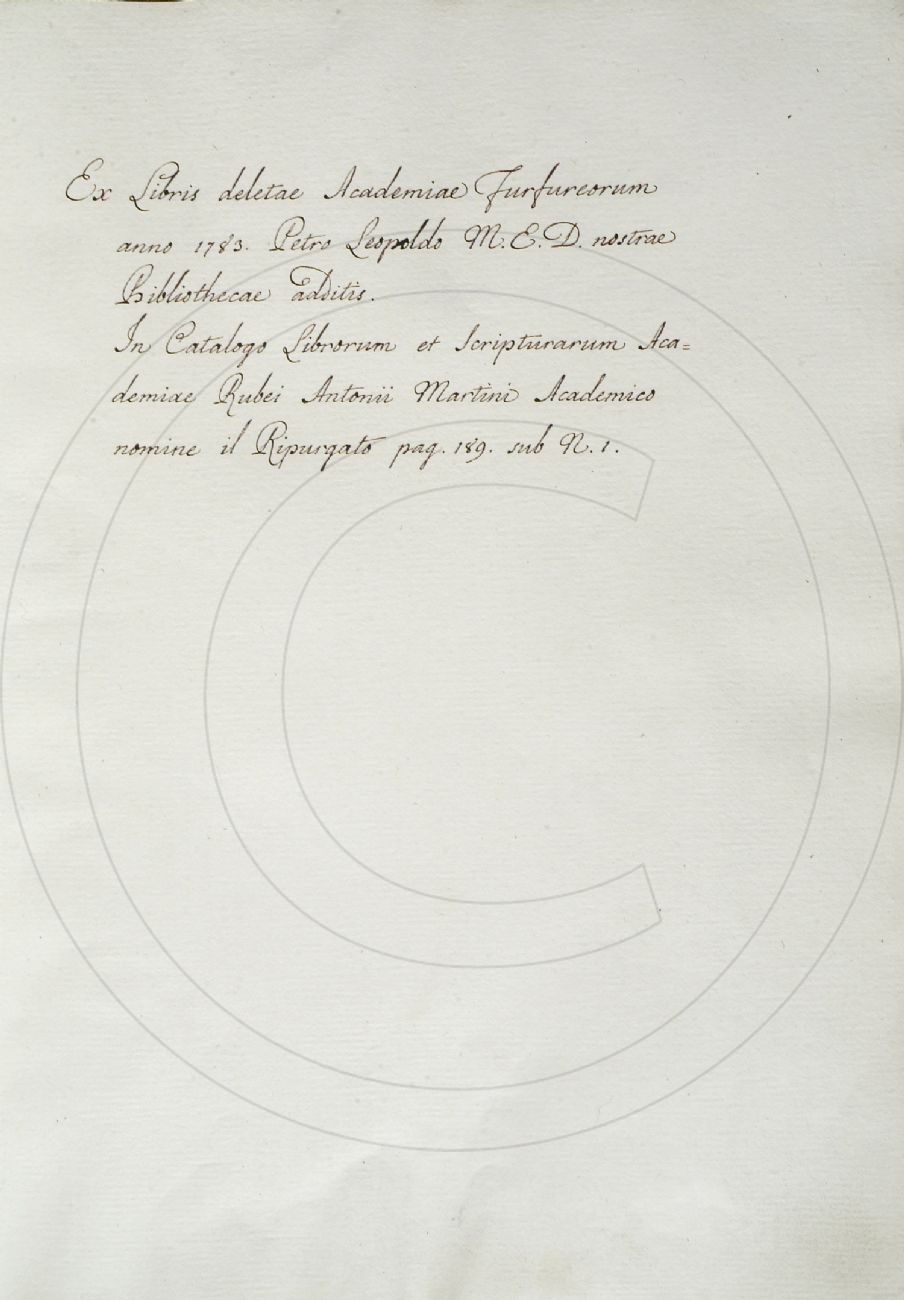 Ex Libris deletae Academiae Furfureorum
anno 1783. Petro Leopoldo M. E. D. nostrae
Bibliothecae additis.
In Catalogo Librorum et Scripturarum Aca=
demiae Rubei Antonii Martini Academico
nomine il Ripurgato pag. 189. sub N. 1.